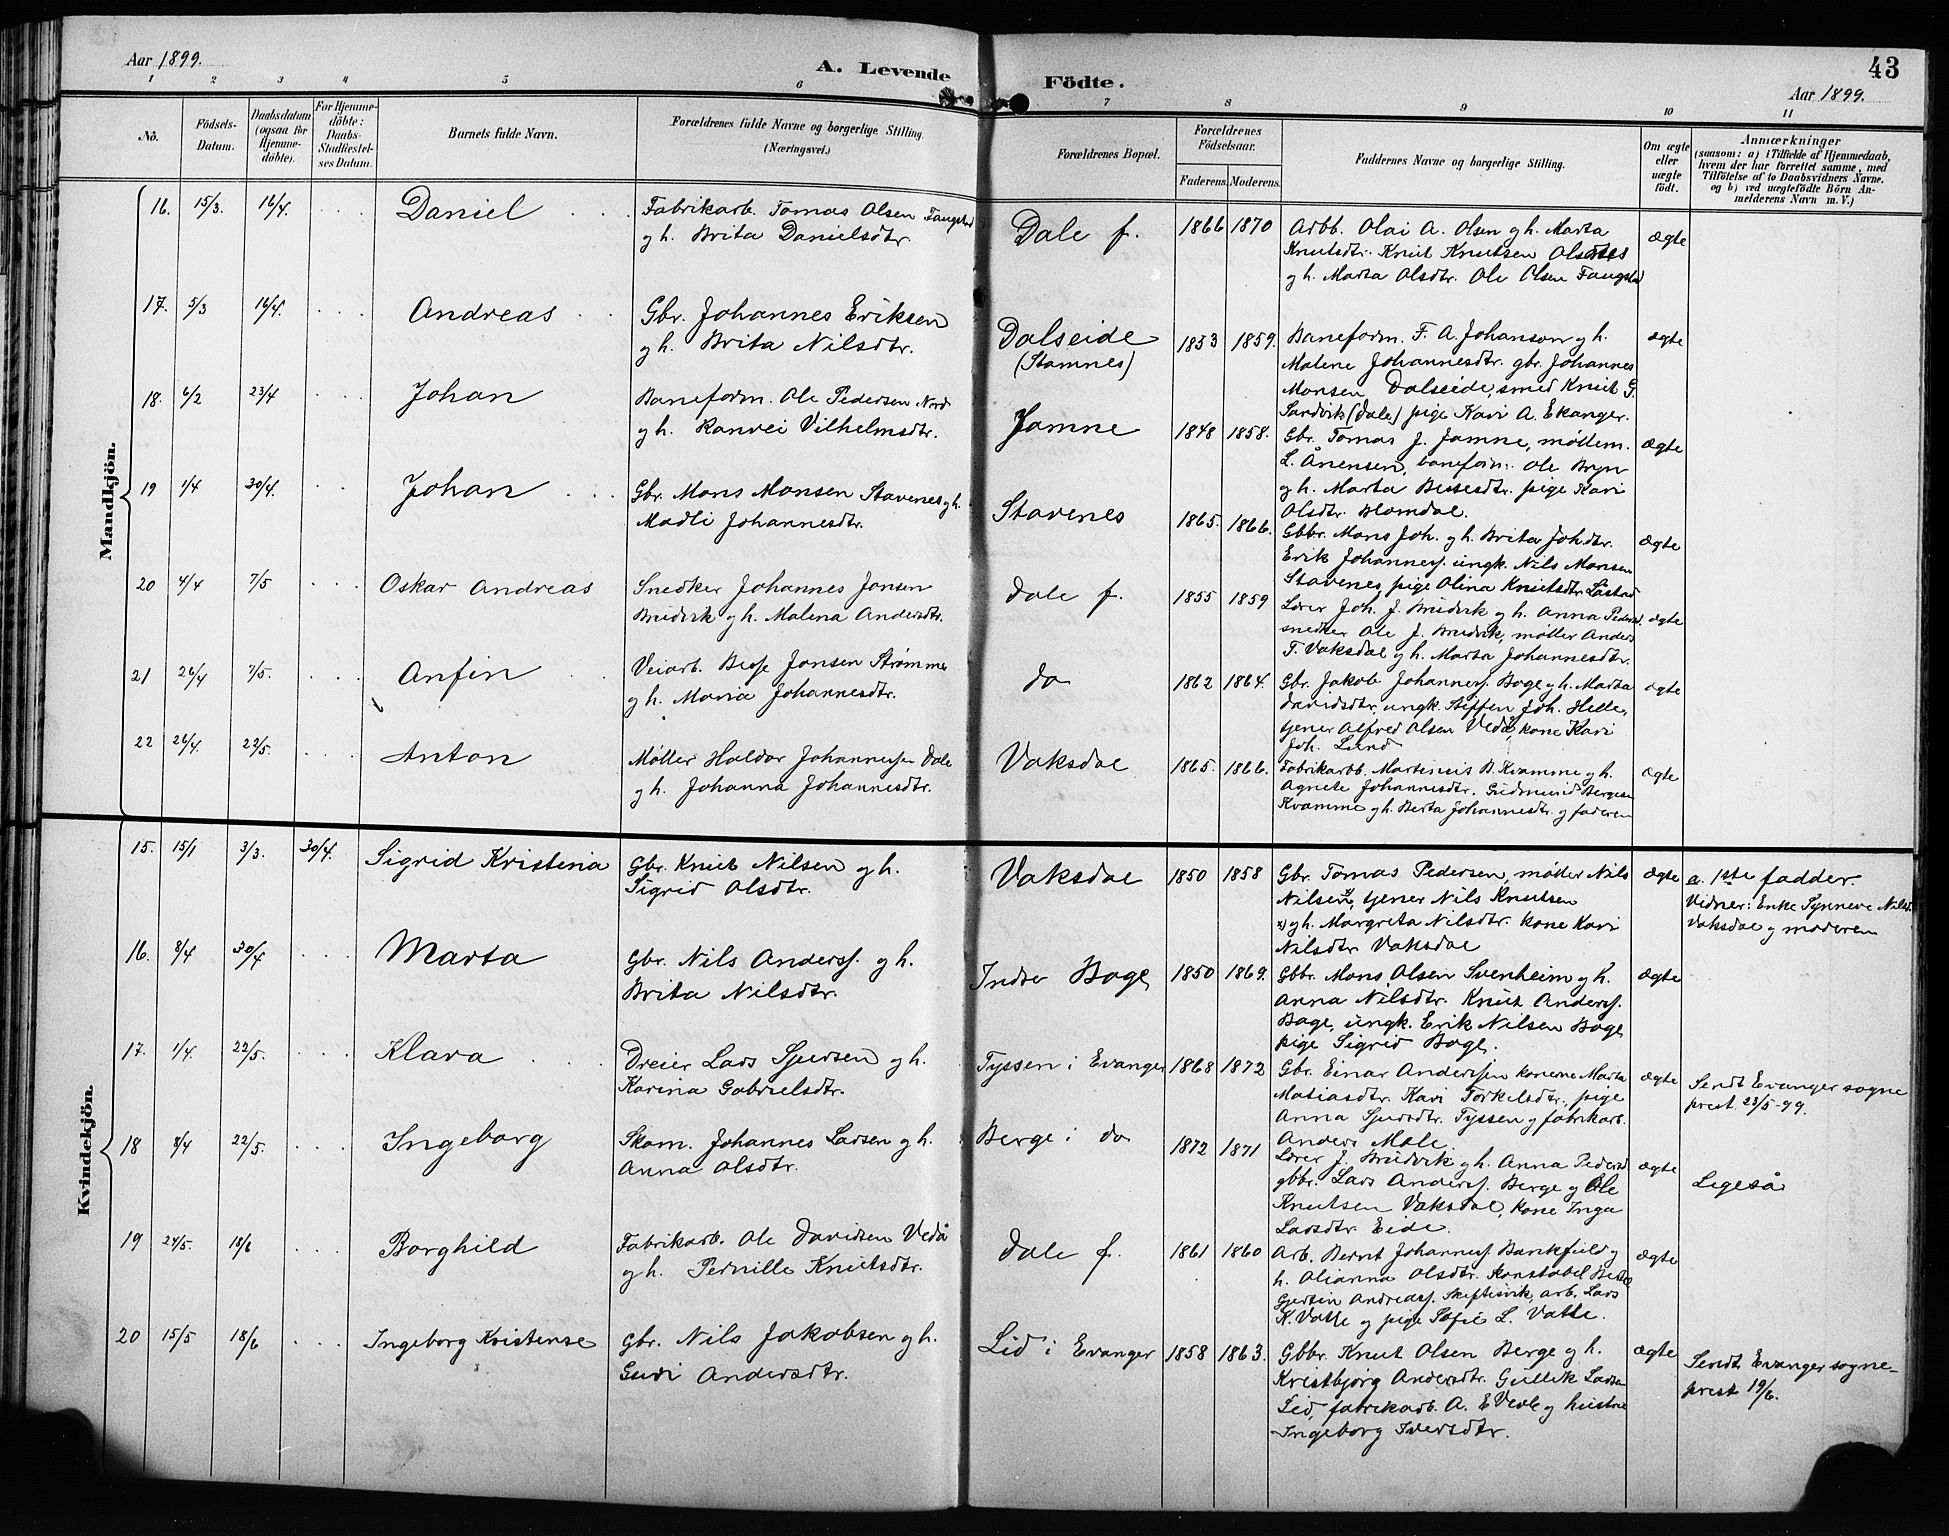 Aar 1899.
A. Levende Födte.
43
Aar 1899.
1 2 3 4 5 6 7 8 9 10 11
No.
Födsels-
Datum.
Daabsdatum
(ogsaa for
Hjemme-
döbte).
For Hjemme-
döbte:
Daabs-
Stadfæstel-
ses Datum.
Barnets fulde Navn.
Forældrenes fulde Navne og borgerlige Stilling.
(Næringsvei.)
Forældrenes Bopæl.
Forældrenes
Födselsaar.
Faderens. Moderens.
Faddernes Navne og borgerlige Stilling.
Om ægte
eller
uægte
födt.
Anmærkninger
(saasom: a) i Tilfælde af Hjemmedaab,
hvem der har forrettet samme, med
Tilföielse af to Daabsvidners Navne.
og b) ved uægtefödte Börn An-
melderens Navn m. V.)
Mandkjön.
16. 15/3. 16/4. Daniel
Fabrikarb. Tomas Olsen Fangstad
og h. Brita Danielsdtr.
Dale f. 1866 1870
Arbb. Olai A. Olsen og h. Marta
Knutsdtr. Knut Knutsen
og h. Marta Olsdtr. Ole Olsen Fangstad
ægte
17. 5/3 16/4. Andreas
Gbr. Johannes Eriksen
og h. Brita Nilsdtr.
Dalseide
(Stamnes)
1853 1859.
Baneform. F. A. Johanson og h.
Malene Johannesdtr. gbr. Johannes
Monsen Dalseide, smed Knut G.
Sandvik (Dale) pige Kari A. Ekanger.
ægte
18. 6/2 23/4 Johan
Baneform. Ole Pedersen Nord
og h. Ranvei Vilhelmsdtr.
Jamne 1848 1858.
Gbr. Tomas J. Jamne, møllem.
L. Ånensen, baneform. Ole Bryn
og h. Marta Bessesdtr. pige Kari
Olsdtr. Blomdal.
ægte
19 1/4 30/4. Johan
Gbr. Mons Monsen Stavenes og h.
Madli Johannesdtr.
Stavenes 1865. 1866.
Gbbr. Mons Joh. og h. Brita Johdtr.
Erik Johannesf. ungk. Nils Monsen
Stavenes, pige Olina Knutsdtr. Låstad
ægte
20 4/4 7/5 Oskar Andreas
Snedker Johannes Jonsen
Brudvik og h. Malena Andersdtr.
Dale f. 1855 1859
Lærer Joh. J. Brudvik og h. Anna Pedersd.
snedker Ole J. Brudvik, møller Anders
T. Vaksdal og h. Marta Johannesdtr.
ægte
21 26/4 7/5. Anfin
Veiarb. Besse Jonsen Strømme
og h. Maria Johannesdtr.
do 1862 1864.
Gbr. Jakob Johannesf. Boge og h. Marta
Davidsdtr. ungk. Steffen Joh. Helle,
tjener Alfred Olsen Vedå, kone Kari
Joh. Lund
ægte
22 26/4. 22/5. Anton
Møller Haldor Johannessen Dale
og h. Johanna Johannesdtr.
Vaksdal 1865. 1866.
Fabrikarbb. Martinus B. Kvamme og h.
Agnete Johannesdtr. Gudmund Bergesen
Kvamme og h. Berta Johannesdtr. og faderen
ægte
Kvindekjön.
15. 15/1 3/3. 30/4. Sigrid Kristina
Gbr. Knut Nilsen og h.
Sigrid Olsdtr.
Vaksdal 1850 1858
Gbr. Tomas Pedersen, møller Nils
Nilsen x), tjener Nils Knutsen
x) og h. Margreta Nilsdtr. kone Kari
Nilsdtr. Vaksdal
ægte
a. 1ste fadder.
Vidner: Enke Synneve Nilsd.
Vaksdal og moderen
16. 8/4 30/4 Marta
Gbr. Nils Andersf. og h.
Brita Nilsdtr.
Indre Boge 1850 1869.
Gbbr. Mons Olsen Svenheim og h.
Anna Nilsdtr. Knut Andersf.
Boge, ungk. Erik Nilsen Boge
pige Sigrid Boge.
ægte
17. 1/4. 22/5. Klara
Dreier Lars Sjursen og h.
Karina Gabrielsdtr.
Tyssen i Evanger 1868 1872
Gbr. Einar Anderssen konerne Marta
Matiasdtr. Kari Torkelsdtr., pige
Anna Sjursdtr. Tyssen og fabrikarb.
Anders Male.
ægte
Sendt Evanger sogne
prest 23/5-99.
18 8/4 22/5. Ingeborg
Skom. Johannes Larsen og h.
Anna Olsdtr.
Berge i do 1872 1871
Lærer J. Brudvik og h. Anna Pedersd.
gbbr. Lars Andersf. Berge og Ole
Knutsen Vaksdal, kone Inga
Larsdtr. Eide.
ægte
Ligeså
19 24/5. 18/6 Borghild
Fabrikarb. Ole Davidsen Vedå
og h. Pernille Knutsdtr.
Dale f. 1861 1860
Arb. Bernt Johannesf. Bankfield og
h. Olianna Olsdtr. Konstabel
Gjertin Andreasf. Skeftesvik, arb. Lars
K. Vatle og pige Sofie L. Vatle.
ægte
20 15/5 18/6 Ingeborg Kristense
Gbr. Nils Jakobsen og h.
Guri Andersdtr.
Lid i Evanger 1858 1863.
Gbbr. Knut Olsen Berge og h.
Kristbjørg Andersdtr. Gullik Larsen
Lid, fabrikarb. A. E. Vevle og hustru
Ingeborg Iversdtr.
ægte
Sendt Evanger sogne-
prest 19/6.